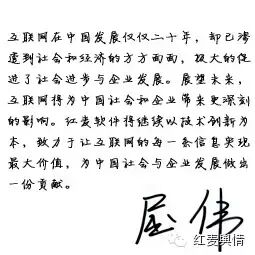 互联网在中国发展仅仅二十年，却已渗
透到社会和经济的方方面面，极大的促
进了社会进步与企业发展。展望未来，
互联网将为中国社会和企业带来更深刻
的影响。红麦软件将继续以技术创新为
本，致力于让互联网的每一条信息实现
最大价值，为中国社会与企业发展做出
一份贡献。
屈伟
红麦舆情